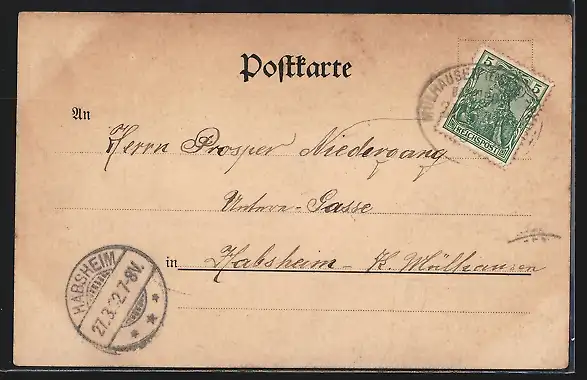 Postkarte
5 5
REICHSPOST
MÜLHAUSEN
An
Herrn Prosper Niedergang
Untere-Gasse
in Habsheim - K. Mülhausen
HABSHEIM
27.3. 2.7-8V.